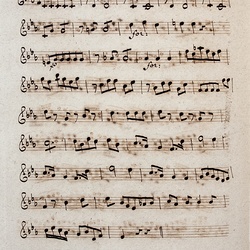 for:
for: